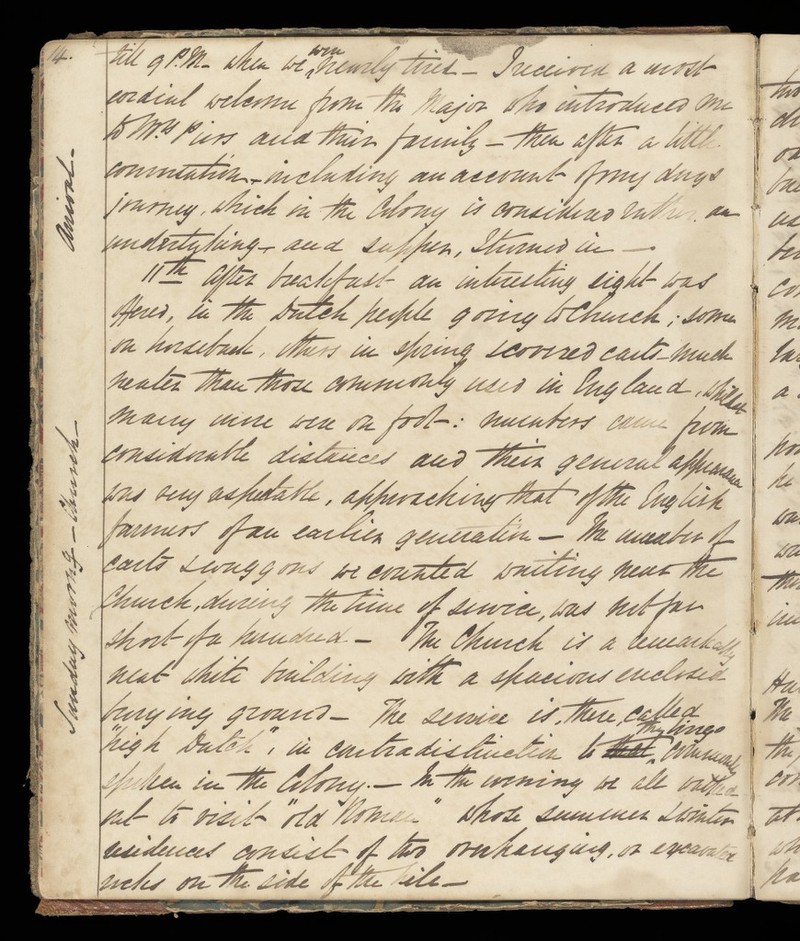 14.
till 9 P.M. when we were nearly tired — I received a most
cordial welcome from the Major who introduced me
to Mrs Piers and their family — then after a little
conversation, including an account of my days
journey, which in the Colony is considered rather an
undertaking, and supper, I turned in —
Arrival —
11th After breakfast an interesting sight was
offered, in the Dutch people going to Church; some
on horseback, others in spring & covered carts much
neater than those commonly used in England, whilst
many more were on foot: numbers came from
considerable distances and their general appearance
was very respectable, approaching that of the English
farmers of an earlier generation — The number of
carts & waggons we counted waiting near the
Church, during the time of service, was not far
short of a hundred. — The Church is a remarkably
neat white building with a spacious enclosed
burying ground — The service is, there, called
"high Dutch", in contradistinction to that the lingo commonly
spoken in the Colony. — In the evening we all walked
out to visit "old" whose summer & winter
residences consist of two overhanging, or excavated
rocks on the side of the hill —
Sunday morng — Church —